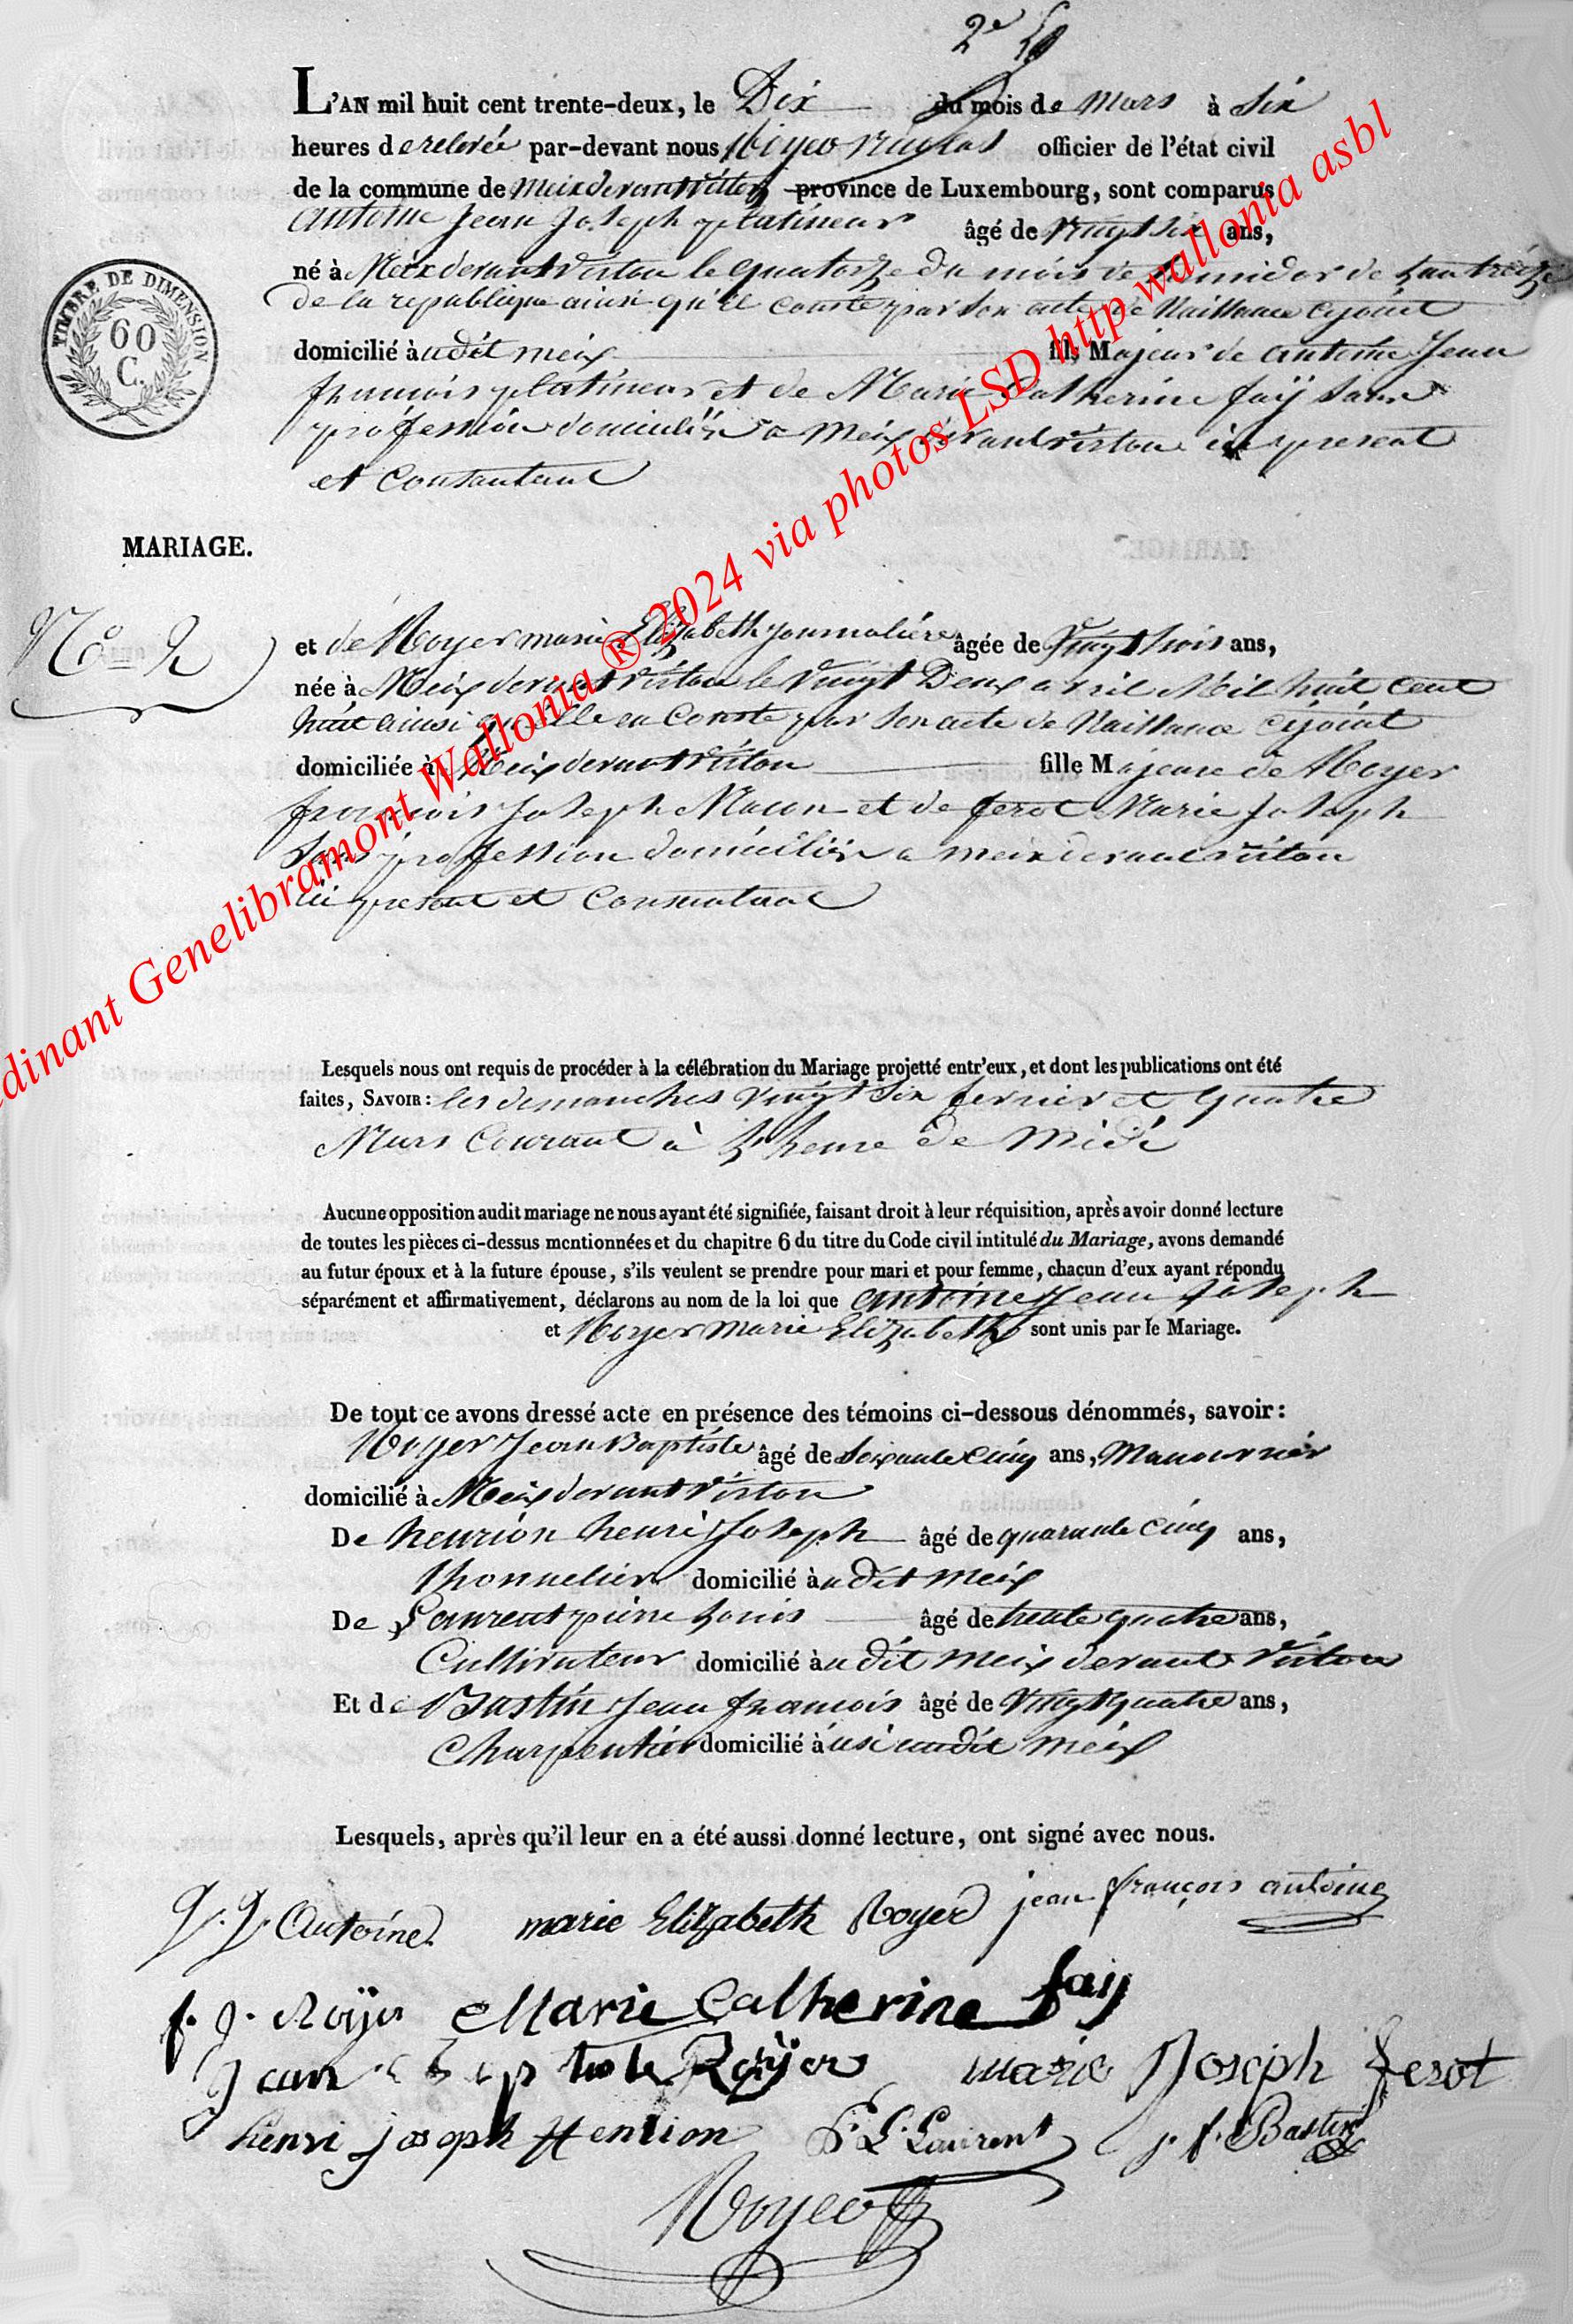 2e
L'AN mil huit cent trente-deux, le Dix du mois de Mars à Six
heures de relevée par-devant nous Royer Nicolas officier de l'état civil
de la commune de Meix devant Virton province de Luxembourg, sont comparus
antoine Jean Joseph platineur âgé de Vingt Six ans,
né à Meix devant virton le quatorze du mois de de Lan treize
de la republique ainsi qu'il conste par son acte de Naissance cijoint
domicilié à udit meix fils Majeur de antoine Jean
francois platineur et de Marie Catherine faÿ sans
profession domiciliés a Meix devant virton ici present
et Consentant
TIMBRE DE DIMENSION
60
C.
MARIAGE.
No 2
et de Royer marie Elizabeth journalière âgée de Vingt trois ans,
née à Meix devant Virton le Vingt Deux avril Mil huit cent
huit ainsi qu'elle en Conste par son acte de Naissance cijoint
domiciliée à Meix devant Virton fille Majeure de Royer
francois Joseph Macon et de ferot Marie Joseph
Sans profession domiciliés a meix devant virton
ici present et Consentant
dinant Genelibramont Wallonia ® 2024 via photos LSD http wallonia asbl
Lesquels nous ont requis de procéder à la célébration du Mariage projetté entr'eux, et dont les publications ont été
faites, SAVOIR: les demanches vingt six fevrier et quatre
Mars Courant à Lheure de Midi
Aucune opposition audit mariage ne nous ayant été signifiée, faisant droit à leur réquisition, après avoir donné lecture
de toutes les pièces ci-dessus mentionnées et du chapitre 6 du titre du Code civil intitulé du Mariage, avons demandé
au futur époux et à la future épouse, s'ils veulent se prendre pour mari et pour femme, chacun d'eux ayant répondu
séparément et affirmativement, déclarons au nom de la loi que antoine Jean Joseph
et Royer Marie Elizabeth sont unis par le Mariage.
De tout ce avons dressé acte en présence des témoins ci-dessous dénommés, savoir:
Royer Jean Baptiste âgé de Soixante cinq ans, Manouvrier
domicilié à Meix devant Virton
De henrion henri Joseph âgé de quarante cinq ans,
thonnelier domicilié àudit meix
De Laurent pierre Louis âgé de trente quatre ans,
Cultivateur domicilié àudit meix devant virton
Et de Bastin Jean francois âgé de vingt quatre ans,
Charpentier domicilié à audit meix
Lesquels, après qu'il leur en a été aussi donné lecture, ont signé avec nous.
J. J. Antoine marie Elizabeth Royer jean françois antoine
f. j. Roÿer Marie Catherine faÿ
Jean Baptiste Roÿer marie Joseph ferot
henri joseph Henrion P. L. Laurent j. f. Bastin
Royer